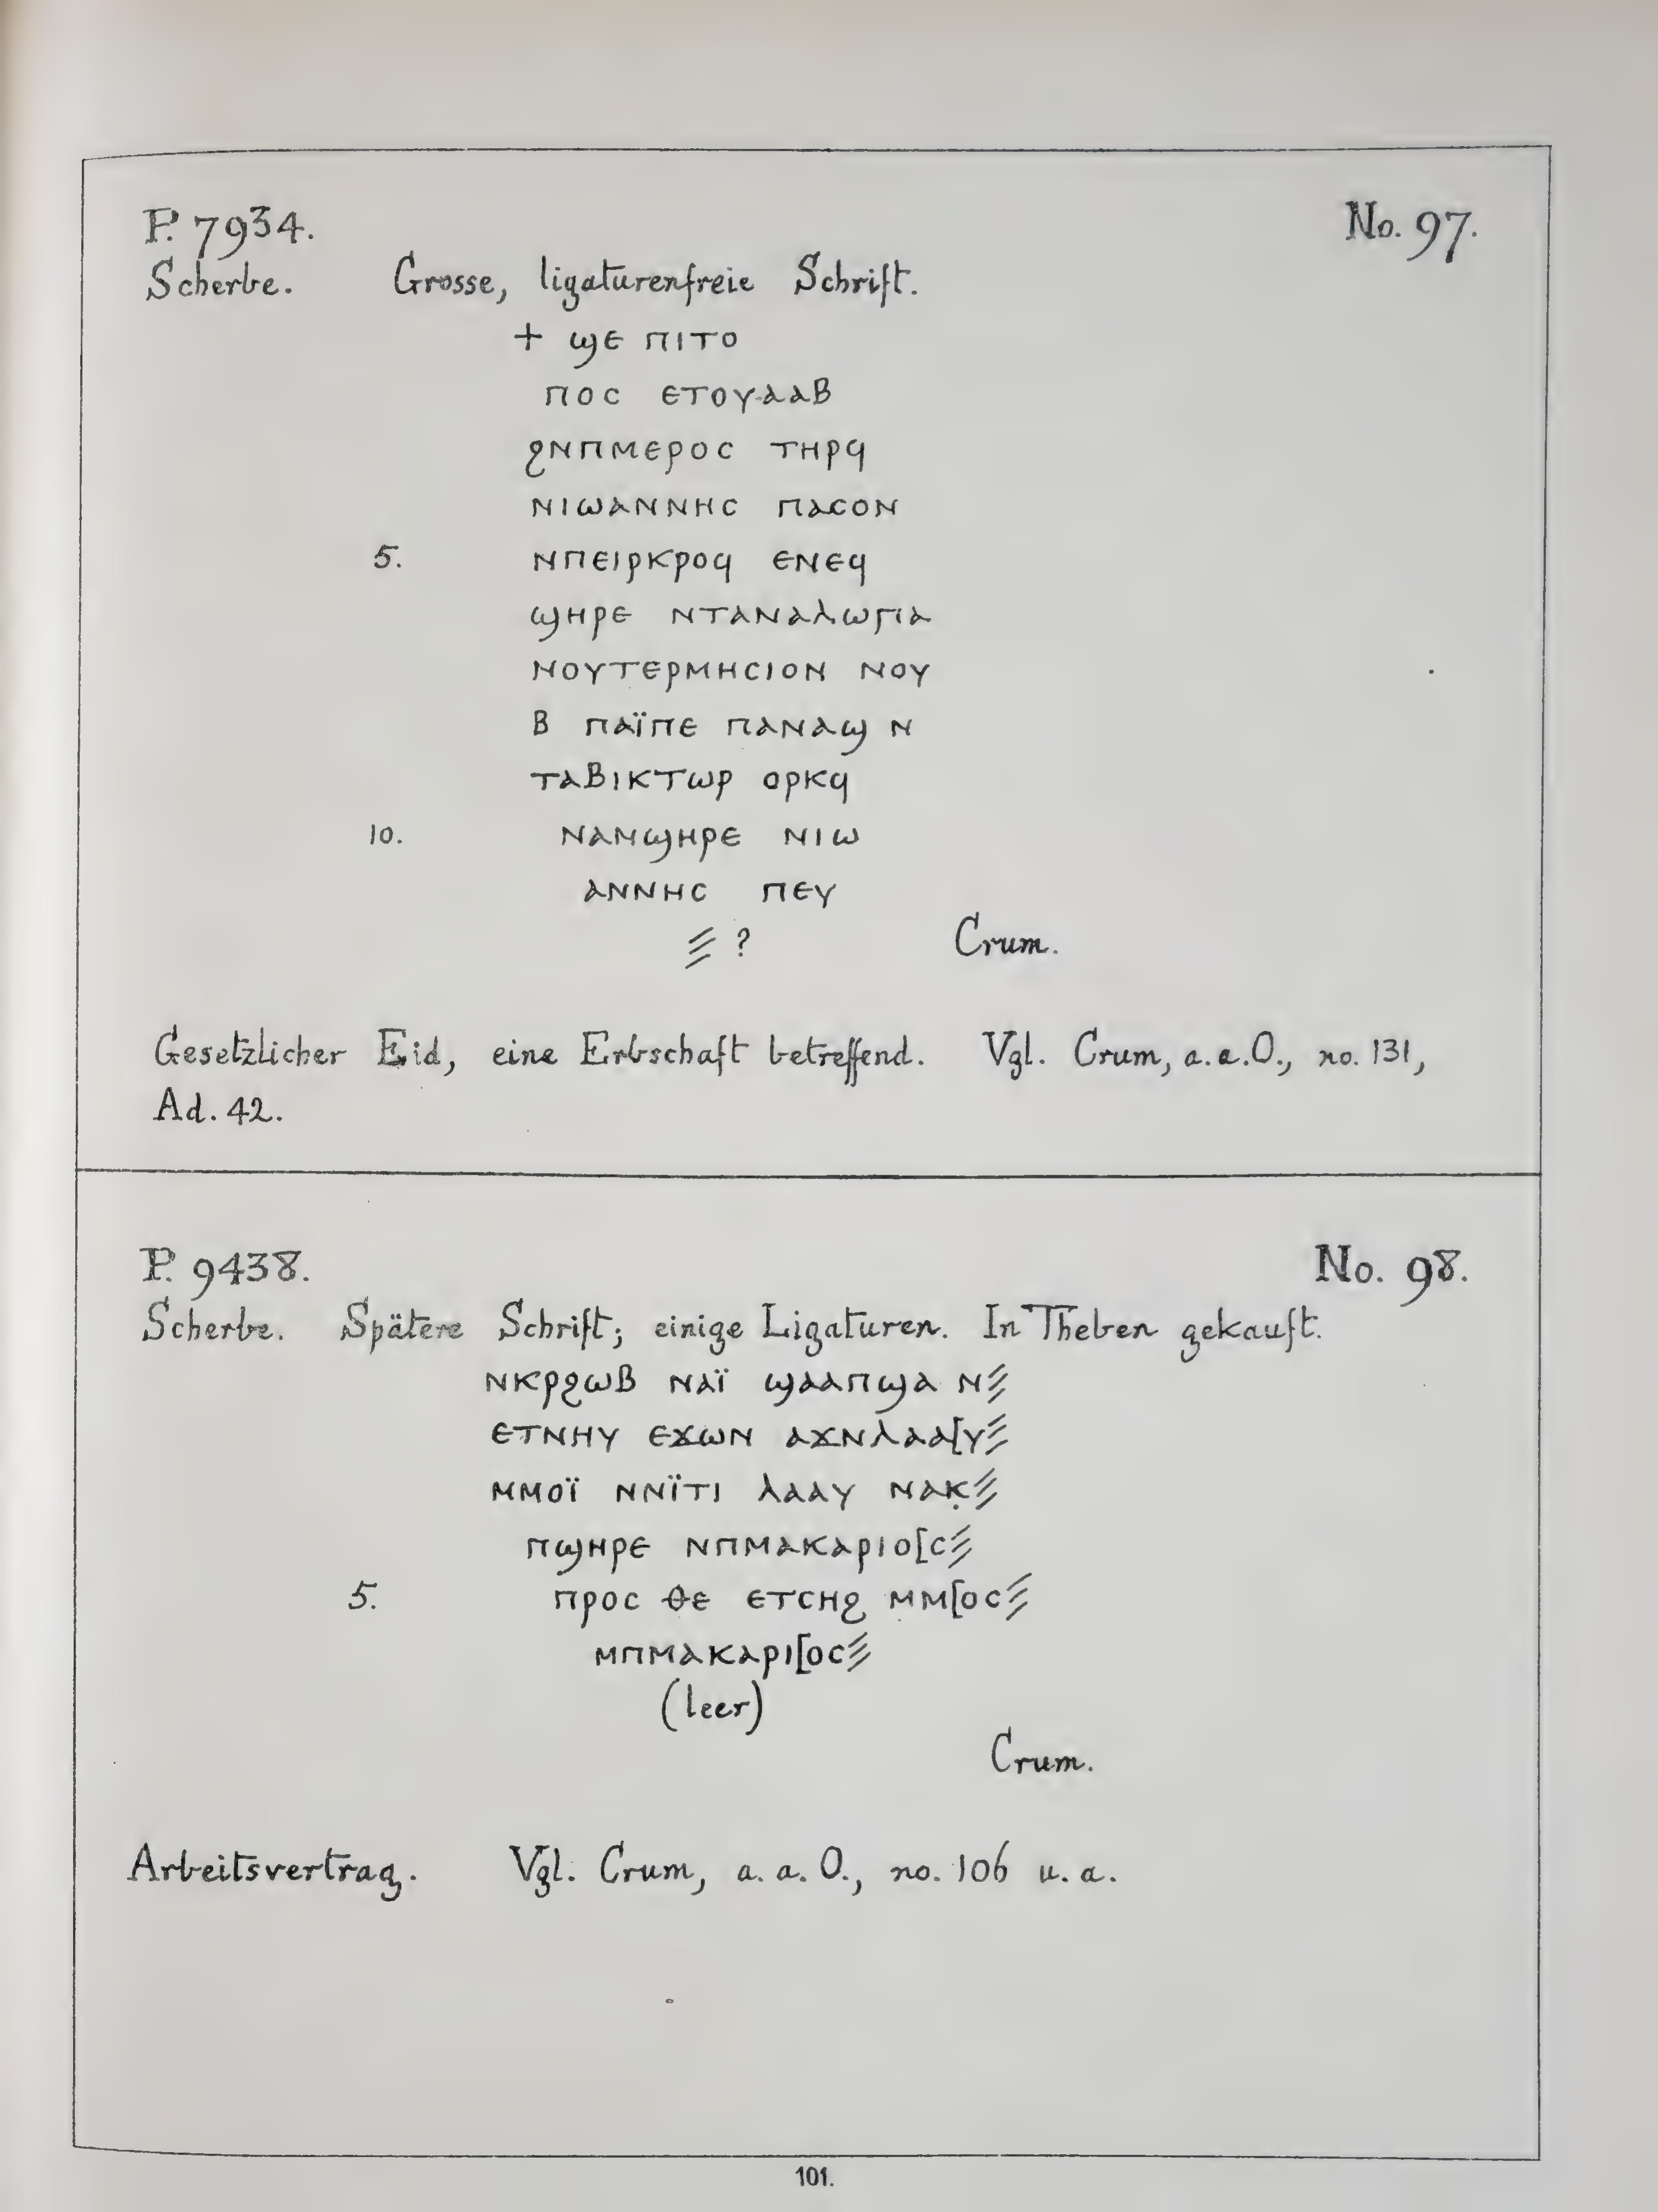 P. 7934. No. 97.
Scherbe. Grosse, ligaturenfreie Schrift.
+ ϣⲉ ⲡⲓⲧⲟ
ⲡⲟⲥ ⲉⲧⲟⲩⲁⲁⲃ
ϩⲛⲡⲙⲉⲣⲟⲥ ⲧⲏⲣϥ
ⲛⲓⲱⲁⲛⲛⲏⲥ ⲡⲁⲥⲟⲛ
5. ⲛⲡⲉⲓⲣⲕⲣⲟϥ ⲉⲛⲉϥ
ϣⲏⲣⲉ ⲛⲧⲁⲛⲁⲗⲱⲅⲓⲁ
ⲛⲟⲩⲧⲉⲣⲙⲏⲥⲓⲟⲛ ⲛⲟⲩ
ⲃ ⲡⲁⲓ̈ⲡⲉ ⲡⲁⲛⲁϣ ⲛ
ⲧⲁⲃⲓⲕⲧⲱⲣ ⲟⲣⲕϥ
10. ⲛⲁⲛϣⲏⲣⲉ ⲛⲓⲱ
ⲁⲛⲛⲏⲥ ⲡⲉⲩ
⫽ ?
Crum.
Gesetzlicher Eid, eine Erbschaft betreffend. Vgl. Crum, a.a.O., no. 131,
Ad. 42.
P. 9438. No. 98.
Scherbe. Spätere Schrift; einige Ligaturen. In Theben gekauft.
ⲛⲕⲣϩⲱⲃ ⲛⲁⲓ̈ ϣⲁⲁⲡϣⲁ ⲛ⫽
ⲉⲧⲛⲏⲩ ⲉϫⲱⲛ ⲁϫⲛⲗⲁⲁ[ⲩ⫽
ⲙⲙⲟⲓ̈ ⲛⲛⲓ̈ⲧⲓ ⲗⲁⲁⲩ ⲛⲁⲕ̣⫽
ⲡϣⲏⲣⲉ ⲛⲡⲙⲁⲕⲁⲣⲓⲟ[ⲥ⫽
5. ⲡⲣⲟⲥ ⲑⲉ ⲉⲧⲥⲏϩ ⲙⲙ[ⲟⲥ⫽
ⲙⲡⲙⲁⲕⲁⲣⲓ[ⲟⲥ⫽
(leer)
Crum.
Arbeitsvertrag. Vgl. Crum, a. a. O., no. 106 u. a.
101.